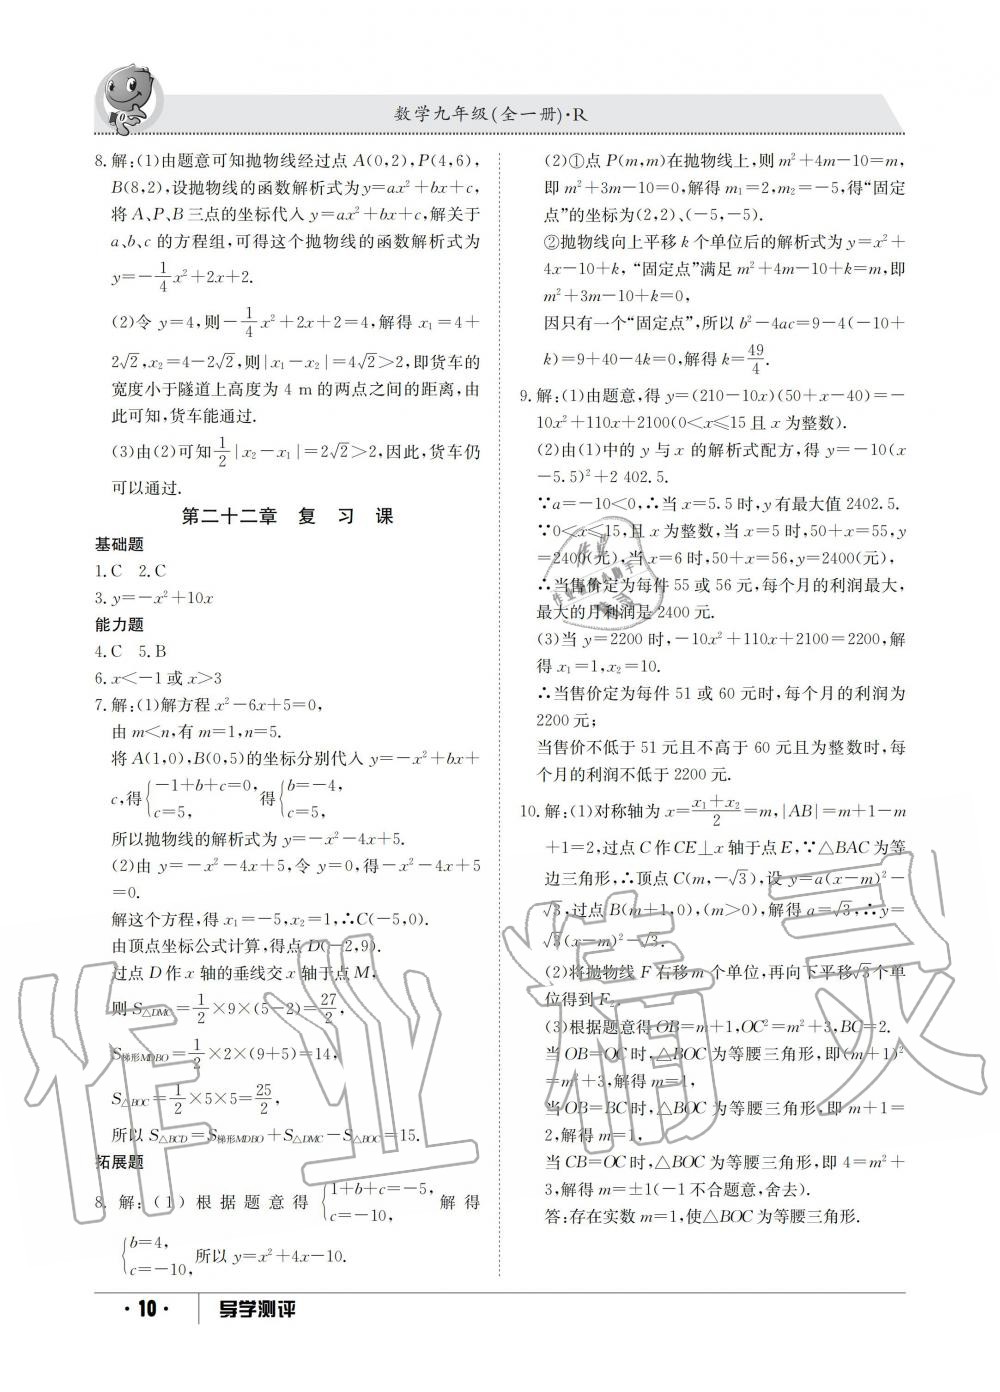 数学九年级(全一册)·R
8. 解:(1)由题意可知抛物线经过点 A(0,2),P(4,6),
B(8,2),设抛物线的函数解析式为y=ax²+bx+c,
将 A、P、B 三点的坐标代入 y=ax²+bx+c,解关于
a、b、c 的方程组,可得这个抛物线的函数解析式为
y=-1/4x²+2x+2.
(2)令 y=4,则-1/4x²+2x+2=4,解得 x₁=4+
2√2,x₂=4-2√2,则|x₁-x₂|=4√2>2,即货车的
宽度小于隧道上高度为 4 m 的两点之间的距离,由
此可知,货车能通过.
(3)由(2)可知1/2|x₂-x₁|=2√2>2,因此,货车仍
可以通过.
第二十二章 复 习 课
基础题
1. C 2. C
3. y=-x²+10x
能力题
4. C 5. B
6. x<-1 或 x>3
7. 解:(1)解方程 x²-6x+5=0,
由 m<n,有 m=1,n=5.
将 A(1,0),B(0,5)的坐标分别代入 y=-x²+bx+
c,得{-1+b+c=0, c=5, 得{b=-4, c=5,
所以抛物线的解析式为 y=-x²-4x+5.
(2)由 y=-x²-4x+5,令 y=0,得-x²-4x+5
=0.
解这个方程,得 x₁=-5,x₂=1,∴C(-5,0).
由顶点坐标公式计算,得点 D(-2,9).
过点 D 作 x 轴的垂线交 x 轴于点 M,
则 S△DMC=1/2×9×(5-2)=27/2,
S梯形MDBO=1/2×2×(9+5)=14,
S△BOC=1/2×5×5=25/2,
所以 S△BCD=S梯形MDBO+S△DMC-S△BOC=15.
拓展题
8. 解:(1)根据题意得 {1+b+c=-5, c=-10, 解得
{b=4, c=-10, 所以 y=x²+4x-10.
(2)①点 P(m,m)在抛物线上,则 m²+4m-10=m,
即 m²+3m-10=0,解得 m₁=2,m₂=-5,得“固定
点”的坐标为(2,2)、(-5,-5).
②抛物线向上平移 k 个单位后的解析式为 y=x²+
4x-10+k,“固定点”满足 m²+4m-10+k=m,即
m²+3m-10+k=0,
因只有一个“固定点”,所以 b²-4ac=9-4(-10+
k)=9+40-4k=0,解得 k=49/4.
9. 解:(1)由题意,得 y=(210-10x)(50+x-40)=-
10x²+110x+2100(0<x≤15 且 x 为整数).
(2)由(1)中的 y 与 x 的解析式配方,得 y=-10(x
-5.5)²+2 402.5.
∵a=-10<0,∴当 x=5.5 时,y 有最大值 2402.5.
∵0<x≤15,且 x 为整数,当 x=5 时,50+x=55,y
=2400(元),当 x=6 时,50+x=56,y=2400(元),
∴当售价定为每件 55 或 56 元,每个月的利润最大,
最大的月利润是 2400 元.
(3)当 y=2200 时,-10x²+110x+2100=2200,解
得 x₁=1,x₂=10.
∴当售价定为每件 51 或 60 元时,每个月的利润为
2200 元;
当售价不低于 51 元且不高于 60 元且为整数时,每
个月的利润不低于 2200 元.
10. 解:(1)对称轴为 x=(x₁+x₂)/2=m,|AB|=m+1-m
+1=2,过点 C 作 CE⊥x 轴于点 E,∵△BAC 为等
边三角形,∴顶点 C(m,-√3),设 y=a(x-m)²-
√3,过点 B(m+1,0),(m>0),解得 a=√3,∴y=
√3(x-m)²-√3.
(2)将抛物线 F 右移 m 个单位,再向下平移√3个单
位得到 F₂.
(3)根据题意得 OB=m+1,OC²=m²+3,BC=2.
当 OB=OC 时,△BOC 为等腰三角形,即(m+1)²
=m²+3,解得 m=1,
当 OB=BC 时,△BOC 为等腰三角形,即 m+1=
2,解得 m=1,
当 CB=OC 时,△BOC 为等腰三角形,即 4=m²+
3,解得 m=±1(-1 不合题意,舍去).
答:存在实数 m=1,使△BOC 为等腰三角形.
·10· 导学测评
作业精灵